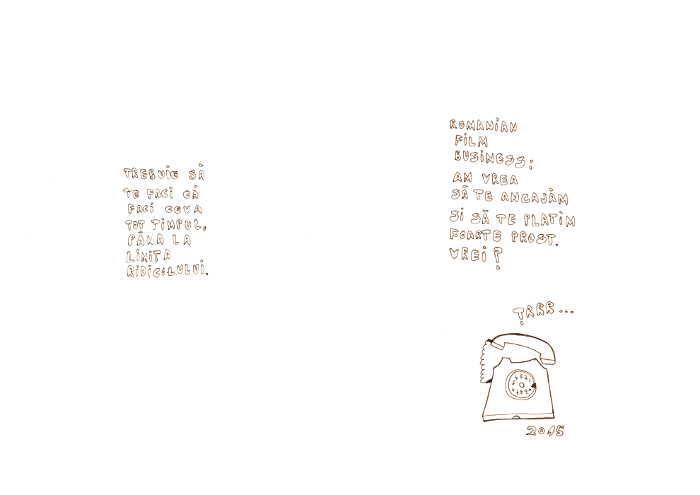 TREBUIE SĂ
TE FACI CĂ
FACI CEVA
TOT TIMPUL,
PÂNĂ LA
LIMITA
RIDICOLULUI.
ROMANIAN
FILM
BUSINESS:
AM VREA
SĂ TE ANGAJĂM
ȘI SĂ TE PLĂTIM
FOARTE PROST.
VREI?
ȚRRR...
2015